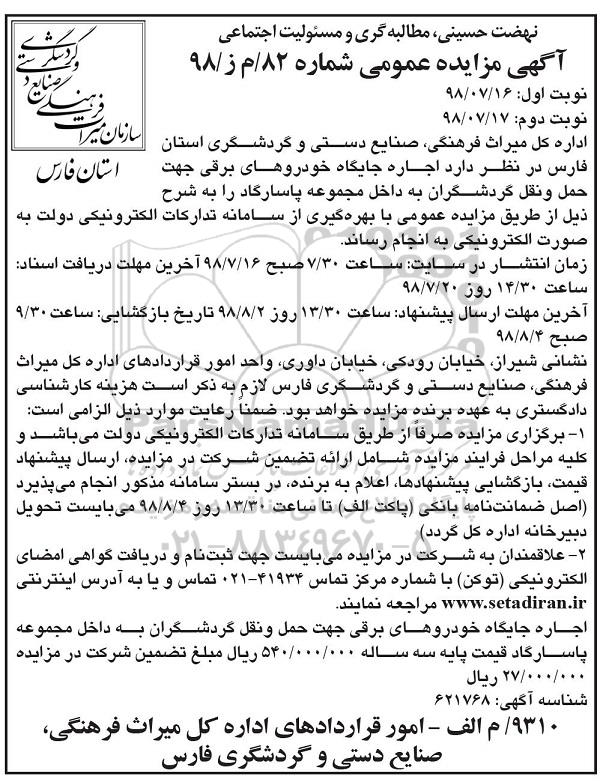 نهضت حسینی، مطالبه‌گری و مسئولیت اجتماعی
آگهی مزایده عمومی شماره ۸۲/م ز/۹۸
سازمان میراث فرهنگی صنایع دستی و گردشگری
استان فارس
نوبت اول: ۹۸/۰۷/۱۶
نوبت دوم: ۹۸/۰۷/۱۷
اداره کل میراث فرهنگی، صنایع دستی و گردشگری استان
فارس در نظر دارد اجاره جایگاه خودروهای برقی جهت
حمل ونقل گردشگران به داخل مجموعه پاسارگاد را به شرح
ذیل از طریق مزایده عمومی با بهره‌گیری از سامانه تدارکات الکترونیکی دولت به
صورت الکترونیکی به انجام رساند.
زمان انتشار در سایت: ساعت ۷/۳۰ صبح ۹۸/۷/۱۶ آخرین مهلت دریافت اسناد:
ساعت ۱۴/۳۰ روز ۹۸/۷/۲۰
آخرین مهلت ارسال پیشنهاد: ساعت ۱۳/۳۰ روز ۹۸/۸/۲ تاریخ بازگشایی: ساعت ۹/۳۰
صبح ۹۸/۸/۴
نشانی شیراز، خیابان رودکی، خیابان داوری، واحد امور قراردادهای اداره کل میراث
فرهنگی، صنایع دستی و گردشگری فارس لازم به ذکر است هزینه کارشناسی
دادگستری به عهده برنده مزایده خواهد بود. ضمناً رعایت موارد ذیل الزامی است:
۱- برگزاری مزایده صرفاً از طریق سامانه تدارکات الکترونیکی دولت می‌باشد و
کلیه مراحل فرایند مزایده شامل ارائه تضمین شرکت در مزایده، ارسال پیشنهاد
قیمت، بازگشایی پیشنهادها، اعلام به برنده، در بستر سامانه مذکور انجام می‌پذیرد
(اصل ضمانت‌نامه بانکی (پاکت الف) تا ساعت ۱۳/۳۰ روز ۹۸/۸/۴ می‌بایست تحویل
دبیرخانه اداره کل گردد)
۲- علاقمندان به شرکت در مزایده می‌بایست جهت ثبت‌نام و دریافت گواهی امضای
الکترونیکی (توکن) با شماره مرکز تماس ۴۱۹۳۴-۰۲۱ تماس و یا به آدرس اینترنتی
www.setadiran.ir مراجعه نمایند.
اجاره جایگاه خودروهای برقی جهت حمل ونقل گردشگران به داخل مجموعه
پاسارگاد قیمت پایه سه ساله ۵۴۰/۰۰۰/۰۰۰ ریال مبلغ تضمین شرکت در مزایده
۲۷/۰۰۰/۰۰۰ ریال
شناسه آگهی: ۶۲۱۷۶۸
۹۳۱۰/ م الف - امور قراردادهای اداره کل میراث فرهنگی،
صنایع دستی و گردشگری فارس
ParsNamadData
۰۲۱-۸۸۳۴۹۶۷۰-۵